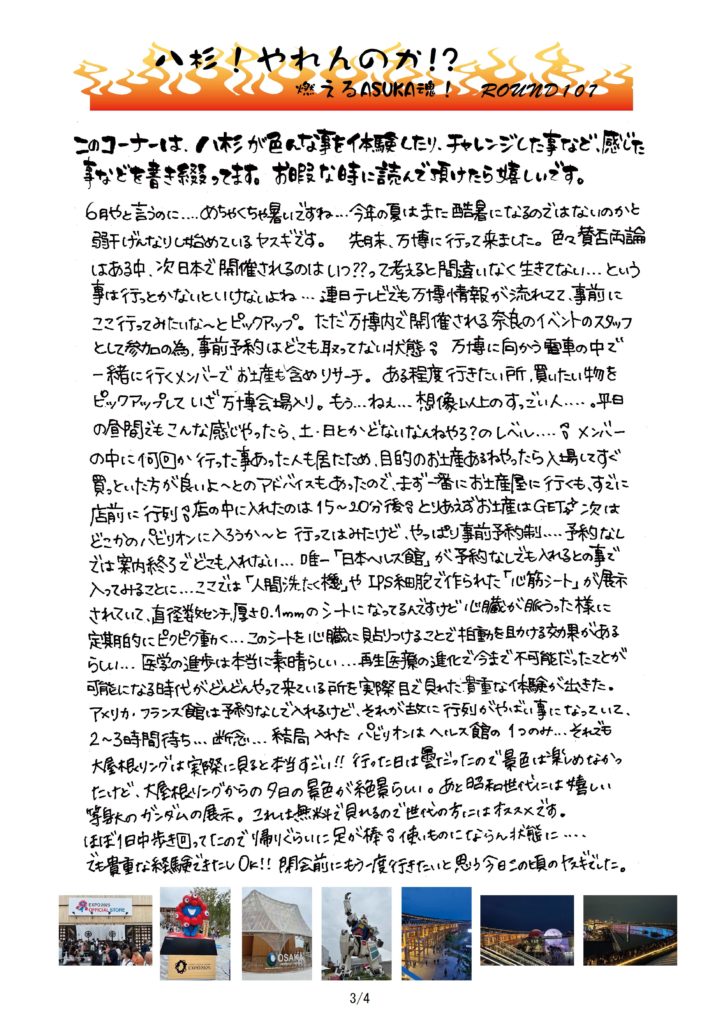 八杉！やれんのか!?
燃えるASUKA魂！ ROUND107
このコーナーは、八杉が色んな事を体験したり、チャレンジした事など、感じた
事などを書き綴ってます。お暇な時に読んで頂けたら嬉しいです。
6月やと言うのに....めちゃくちゃ暑いですね...今年の夏はまた酷暑になるのではないのかと
若干げんなりし始めているヤスギです。 先日末、万博に行って来ました。色々賛否両論
はある中、次日本で開催されるのはいつ??って考えると間違いなく生きてない...という
事は行っとかないといけないよね...連日テレビでも万博情報が流れてて、事前に
ここ行ってみたいな〜とピックアップ。ただ万博内で開催される奈良のイベントのスタッフ
として参加の為、事前予約はどこも取ってない状態 万博に向かう電車の中で
一緒に行くメンバーでお土産も含めリサーチ。ある程度行きたい所、買いたい物を
ピックアップしていざ万博会場入り。もう...ねぇ...想像以上のすっごい人....。平日
の昼間でもこんな感じやったら、土・日とかどないなんねやろ?のレベル.... メンバー
の中に何回か行った事あった人も居たため、目的のお土産あるねやったら入場してすぐ
買っといた方が良いよ〜とのアドバイスもあったので、まず一番にお土産屋に行くも、すでに
店前に行列 店の中に入れたのは15〜20分後 とりあえずお土産はGET 次は
どこかのパビリオンに入ろうか〜と行ってはみたけど、やっぱり事前予約制....予約なし
では案内終了でどこも入れない... 唯一「日本ヘルス館」が予約なしでも入れるとの事で
入ってみることに...ここでは「人間洗たく機」や IPS細胞で作られた「心筋シート」が展示
されていて、直径数センチ、厚さ0.1mmのシートになってるんですけど心臓が脈うった様に
定期的にピクピク動く...このシートを心臓に貼りつけることで拍動を助ける効果がある
らしい... 医学の進歩は本当に素晴らしい...再生医療の進化で今まで不可能だったことが
可能になる時代がどんどんやって来ている所を実際目で見れた貴重な体験が出きた。
アメリカ・フランス館は予約なしで入れるけど、それが故に行列がやばい事になっていて、
2〜3時間待ち...断念...結局入れたパビリオンはヘルス館の1つのみ...それでも
大屋根リングは実際に見ると本当すごい!! 行った日は曇だったので景色は楽しめなかっ
たけど、大屋根リングからの夕日の景色が絶景らしい。あと昭和世代には嬉しい
等身大のガンダムの展示。これは無料で見れるので世代の方にはオススメです。
ほぼ1日中歩き回ってたので帰りぐらいに足が棒 使いものにならん状態に....
でも貴重な経験できたしOK!! 閉会前にもう一度行きたいと思う今日この頃のヤスギでした。
EXPO2025
OFFICIAL STORE
EXPO2025
OSAKA
3/4